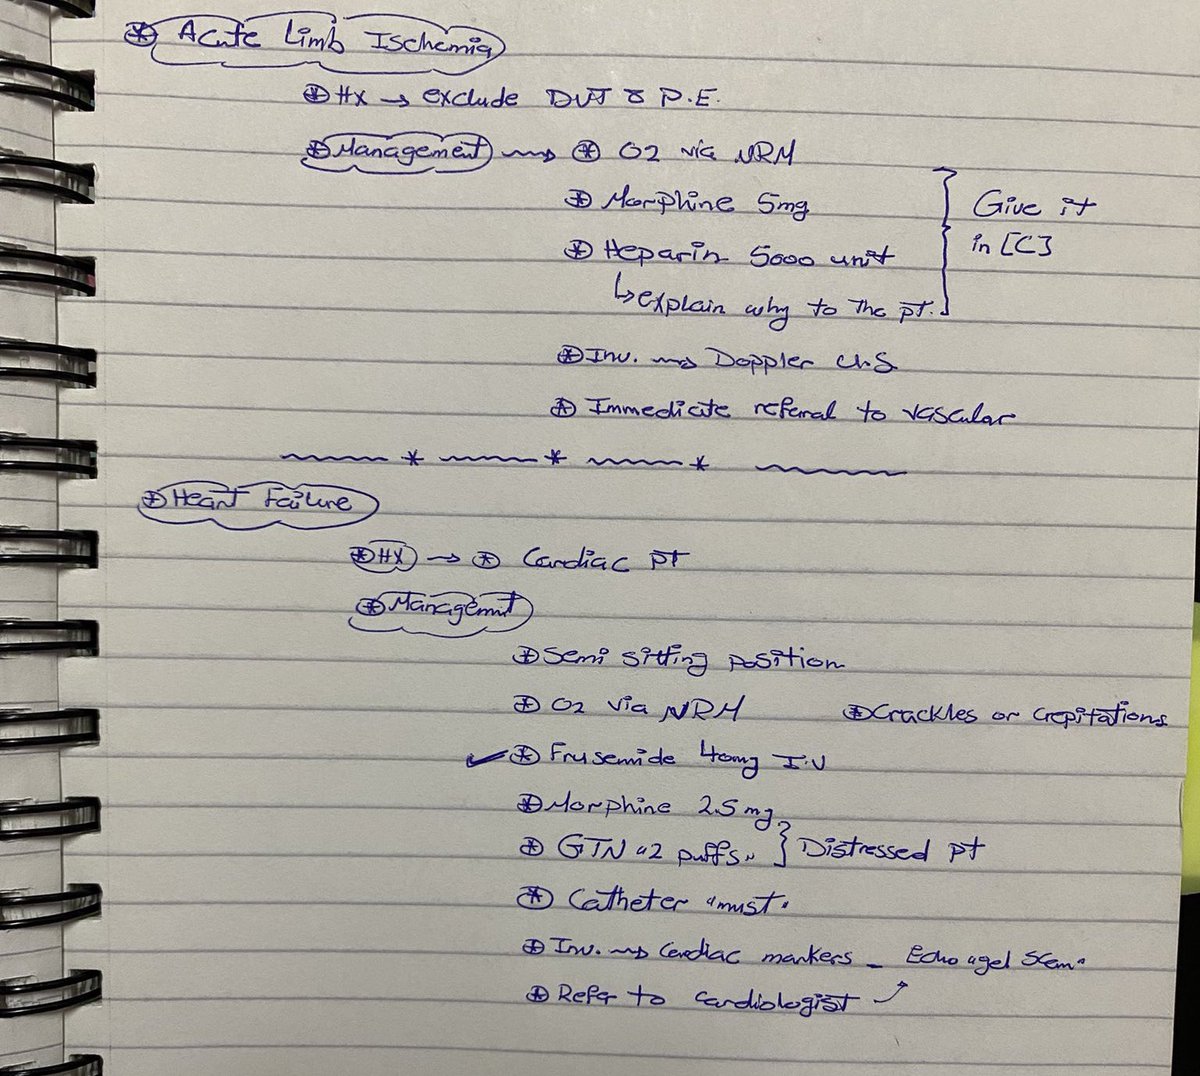 Acute Limb Ischemia
Hx → exclude DVT & P.E.
Management → O2 via NRM
Morphine 5mg
Give it
in [C]
Heparin 5000 unit
↳ explain why to the pt.
Inv. → Doppler U.S
Immediate referral to vascular
Heart Failure
Hx → Cardiac pt
Management
Semi sitting position
O2 via NRM
Crackles or Crepitations
✓ Frusemide 40mg I.V
Morphine 2.5 mg
GTN "2 puffs" } Distressed pt
Catheter "must"
Inv. → Cardiac markers - Echo "gel
Refer to cardiologist